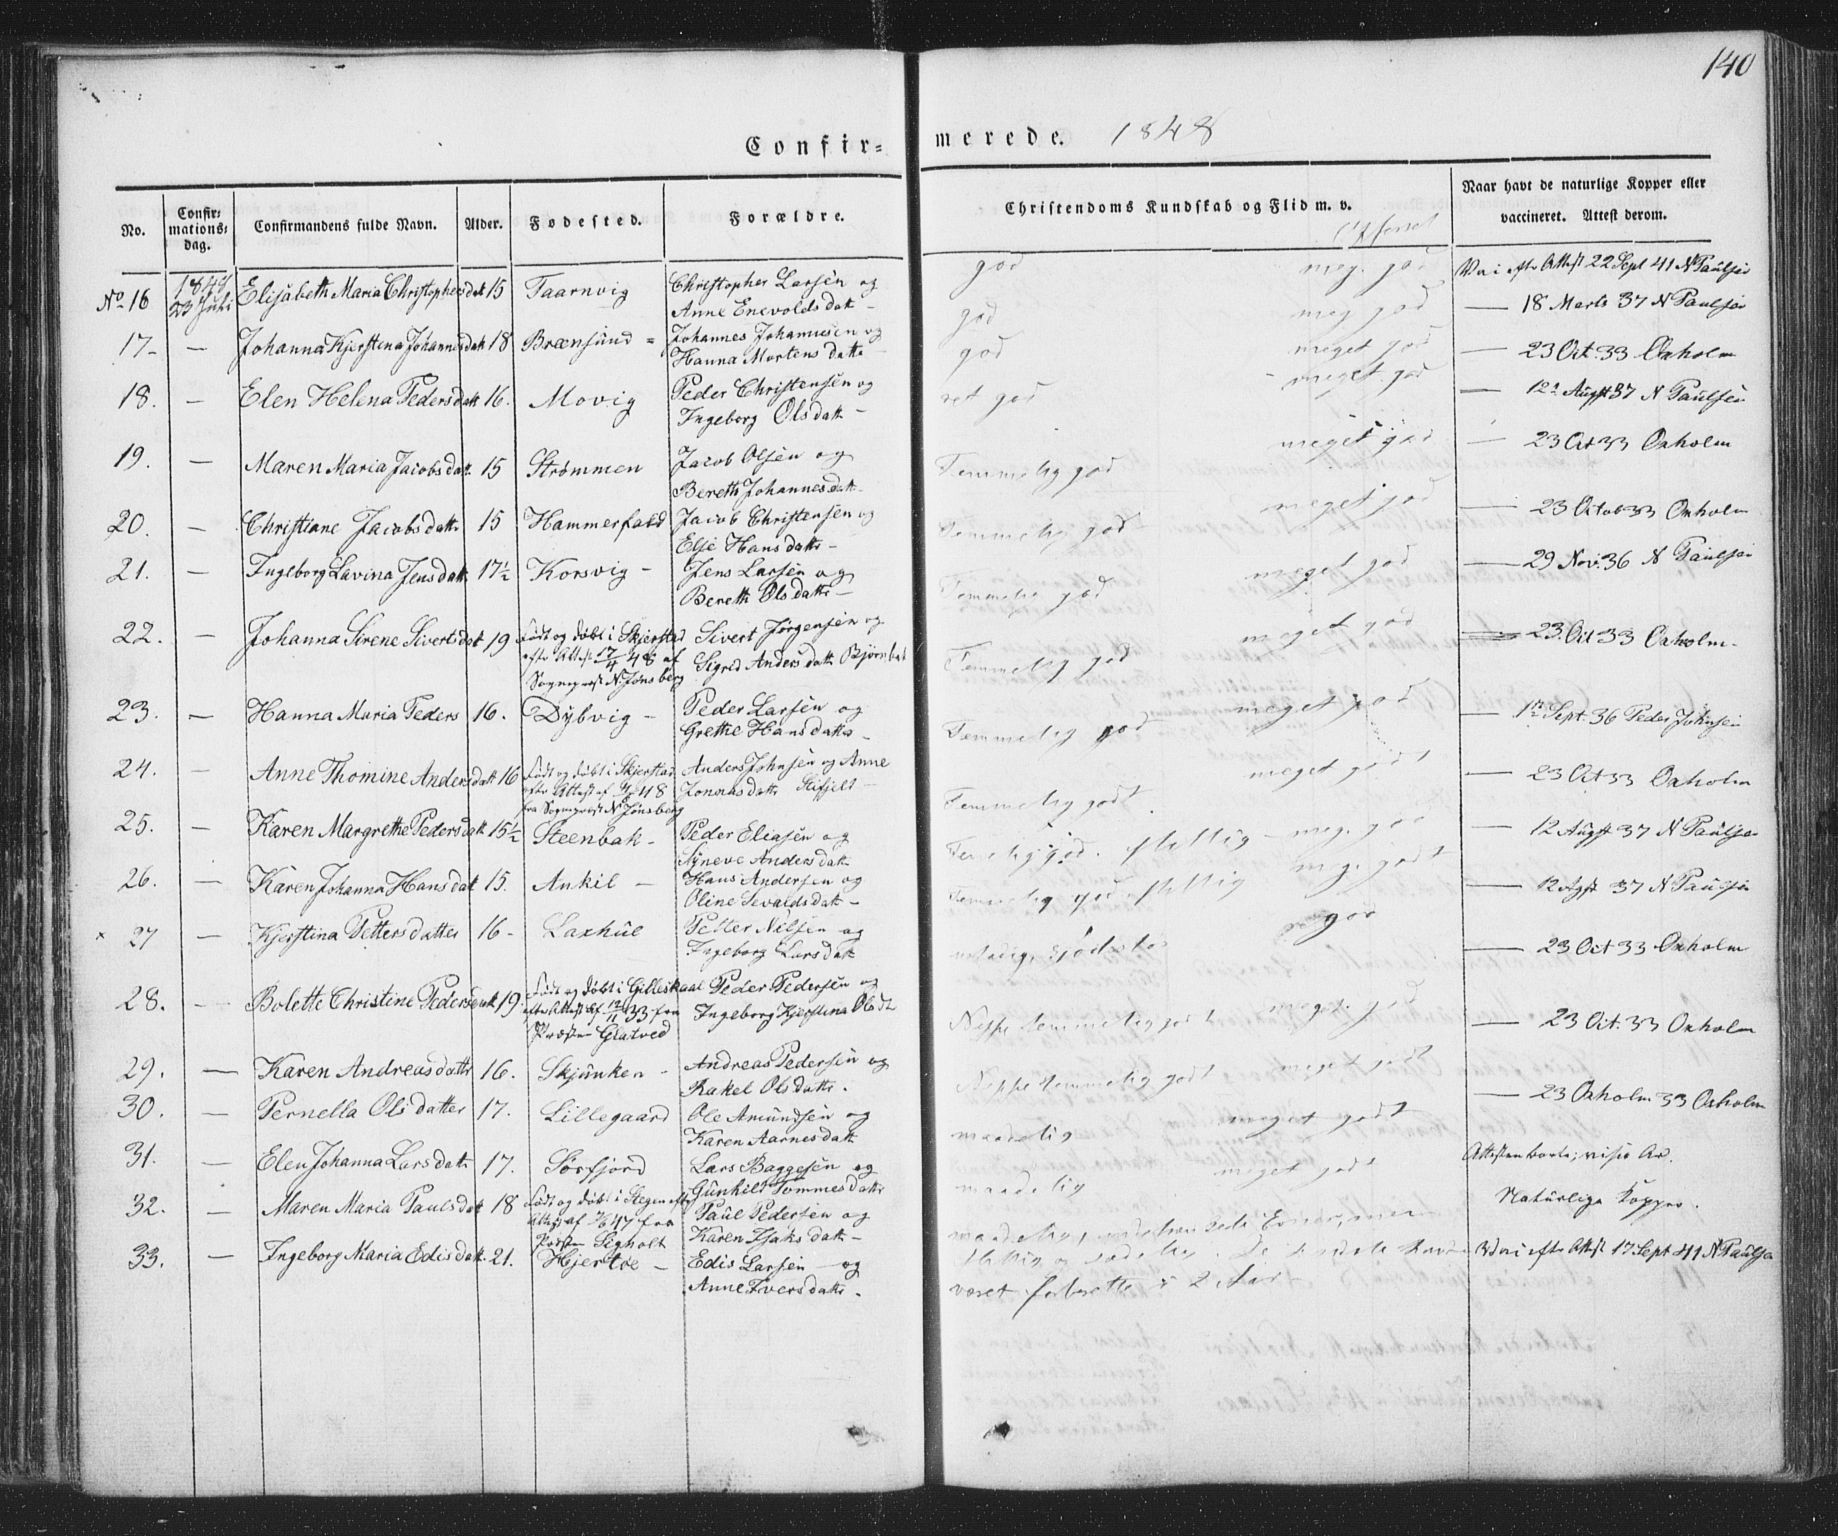 140
Confirmerede. 1848
No.
Confirmationsdag.
Confirmandens fulde Navn.
Alder.
Fødested.
Forældre.
Christendoms Kundskab og Flid m. v.
Naar havt de naturlige Kopper eller vaccineret. Attest derom.
No 16 1848 23 Juli Elisabeth Maria Christophersdatt 15 Taarnvig Christopher Larsen og Anne Enevoldsdatt - god meg. god Va i efter Attest 22 Sept 41 N Paulsen
17 - — Johanna Kjerstina Johannesdatt 18 Brænsund = Johannes Johannesen og Hanna Mortensdatte god meg god — 18 Marts 37 N Paulsen
18. — Elen Helena Pedersdatt 16. Movig Peder Christensen og Ingeborg Olsdatt - god meget god — 23 Oct. 33 Oxholm
19. — Maren Maria Jacobsdat. 15 Strømmen Jacob Olsen og Bereth Johannesdatt ret god meget god — 12 Augst 37 N Paulsen
20. — Christiane Jacobsdatte 15 Hammerfald Jacob Christensen og Else Hansdatte - Temmelig god meget god — 23 Oct 33 Oxholm
21. — Ingeborg Lavina Jensdatt 17½ Korsvig - Jens Larsen og Bereth Olsdatte - Temmelig god meget god — 23 Octob 33 Oxholm
22. — Johanna Sirene Sivertsdat 19 Født og døbt i Skjerstad efter Attest 17/4 48 af Sogneprest N. Jonsberg Sivert Jørgensen og Sigrid Andersdatt Bjørnbak Temmelig god meget god — 29 Nov. 36 N Paulsen
23. — Hanna Maria Peders 16. Dybvig - Peder Larsen og Grethe Hansdatte - Temmelig god meget god — 23 Oct 33 Oxholm.
24. — Anne Thomine Andersdatt 16 Født og døbt i Skjerstad efter Attest af 48 fra Sogneprest N. Jonsberg Anders Johnsen og Anne Jonasdatte - Temmelig god meget god — 1 Sept. 36 Peder Johnsen
25. — Karen Margrethe Pedersdatt 15½ Steenbak - Peder Eliasen og Synneve Andersdatt Temmelig godt. meget godt — 23 Oct 33 Oxholm
26. — Karen Johanna Hansdat 15. Ankil - Hans Andersen og Oline Sevaldsdatt - flittig - meg. god — 12 Augst 37 N Paulsen
× 27 — Kjerstina Pettersdatter 16 - Laxhul Petter Nilsen og Ingeborg Larsdatt Temmelig god flittig meg. godt — 12 Agst 37 N Paulsen
28. — Bolette Christine Pedersdatt 19. Født og døbt i Gilleskaal efter Attest af 33 fra Præsten Glatved Peder Pedersen og Ingeborg Kjerstina Olsdt god — 23 Oct 33 Oxholm
29. — Karen Andreasdatte 16. Skjunken - Andreas Pedersen og Rakel Olsdatte. Neppe temmelig godt meget god — 23 Oct. 33 Oxholm
30. — Pernella Olsdatter 17. Lillegaard Ole Amundsen og Karen Aarnesdatt Neppe temmelig godt meget godt — 23 Oxholm 33 Oxholm
31. — Elen Johanna Larsdatte 17. Sørfjord Lars Baggesen og Gunhild Tommesdatte maadelig meget godt Attesten borte;
32. — Maren Maria Paulsdat 18 Født og døbt i Stegen efter Attest af 47 fra Præsten Sigholt Paul Pedersen og Karen Isaksdatt - maadelig meget godt Naturlige Kopper.
33. — Ingeborg Maria Edisdatt. 21. Hjertøe - Edis Larsen og Anne Iversdatte. maadelig, flittig og været forberettet i 2 Aar Va i efter Attest 17 Sept 41 N Paulsen